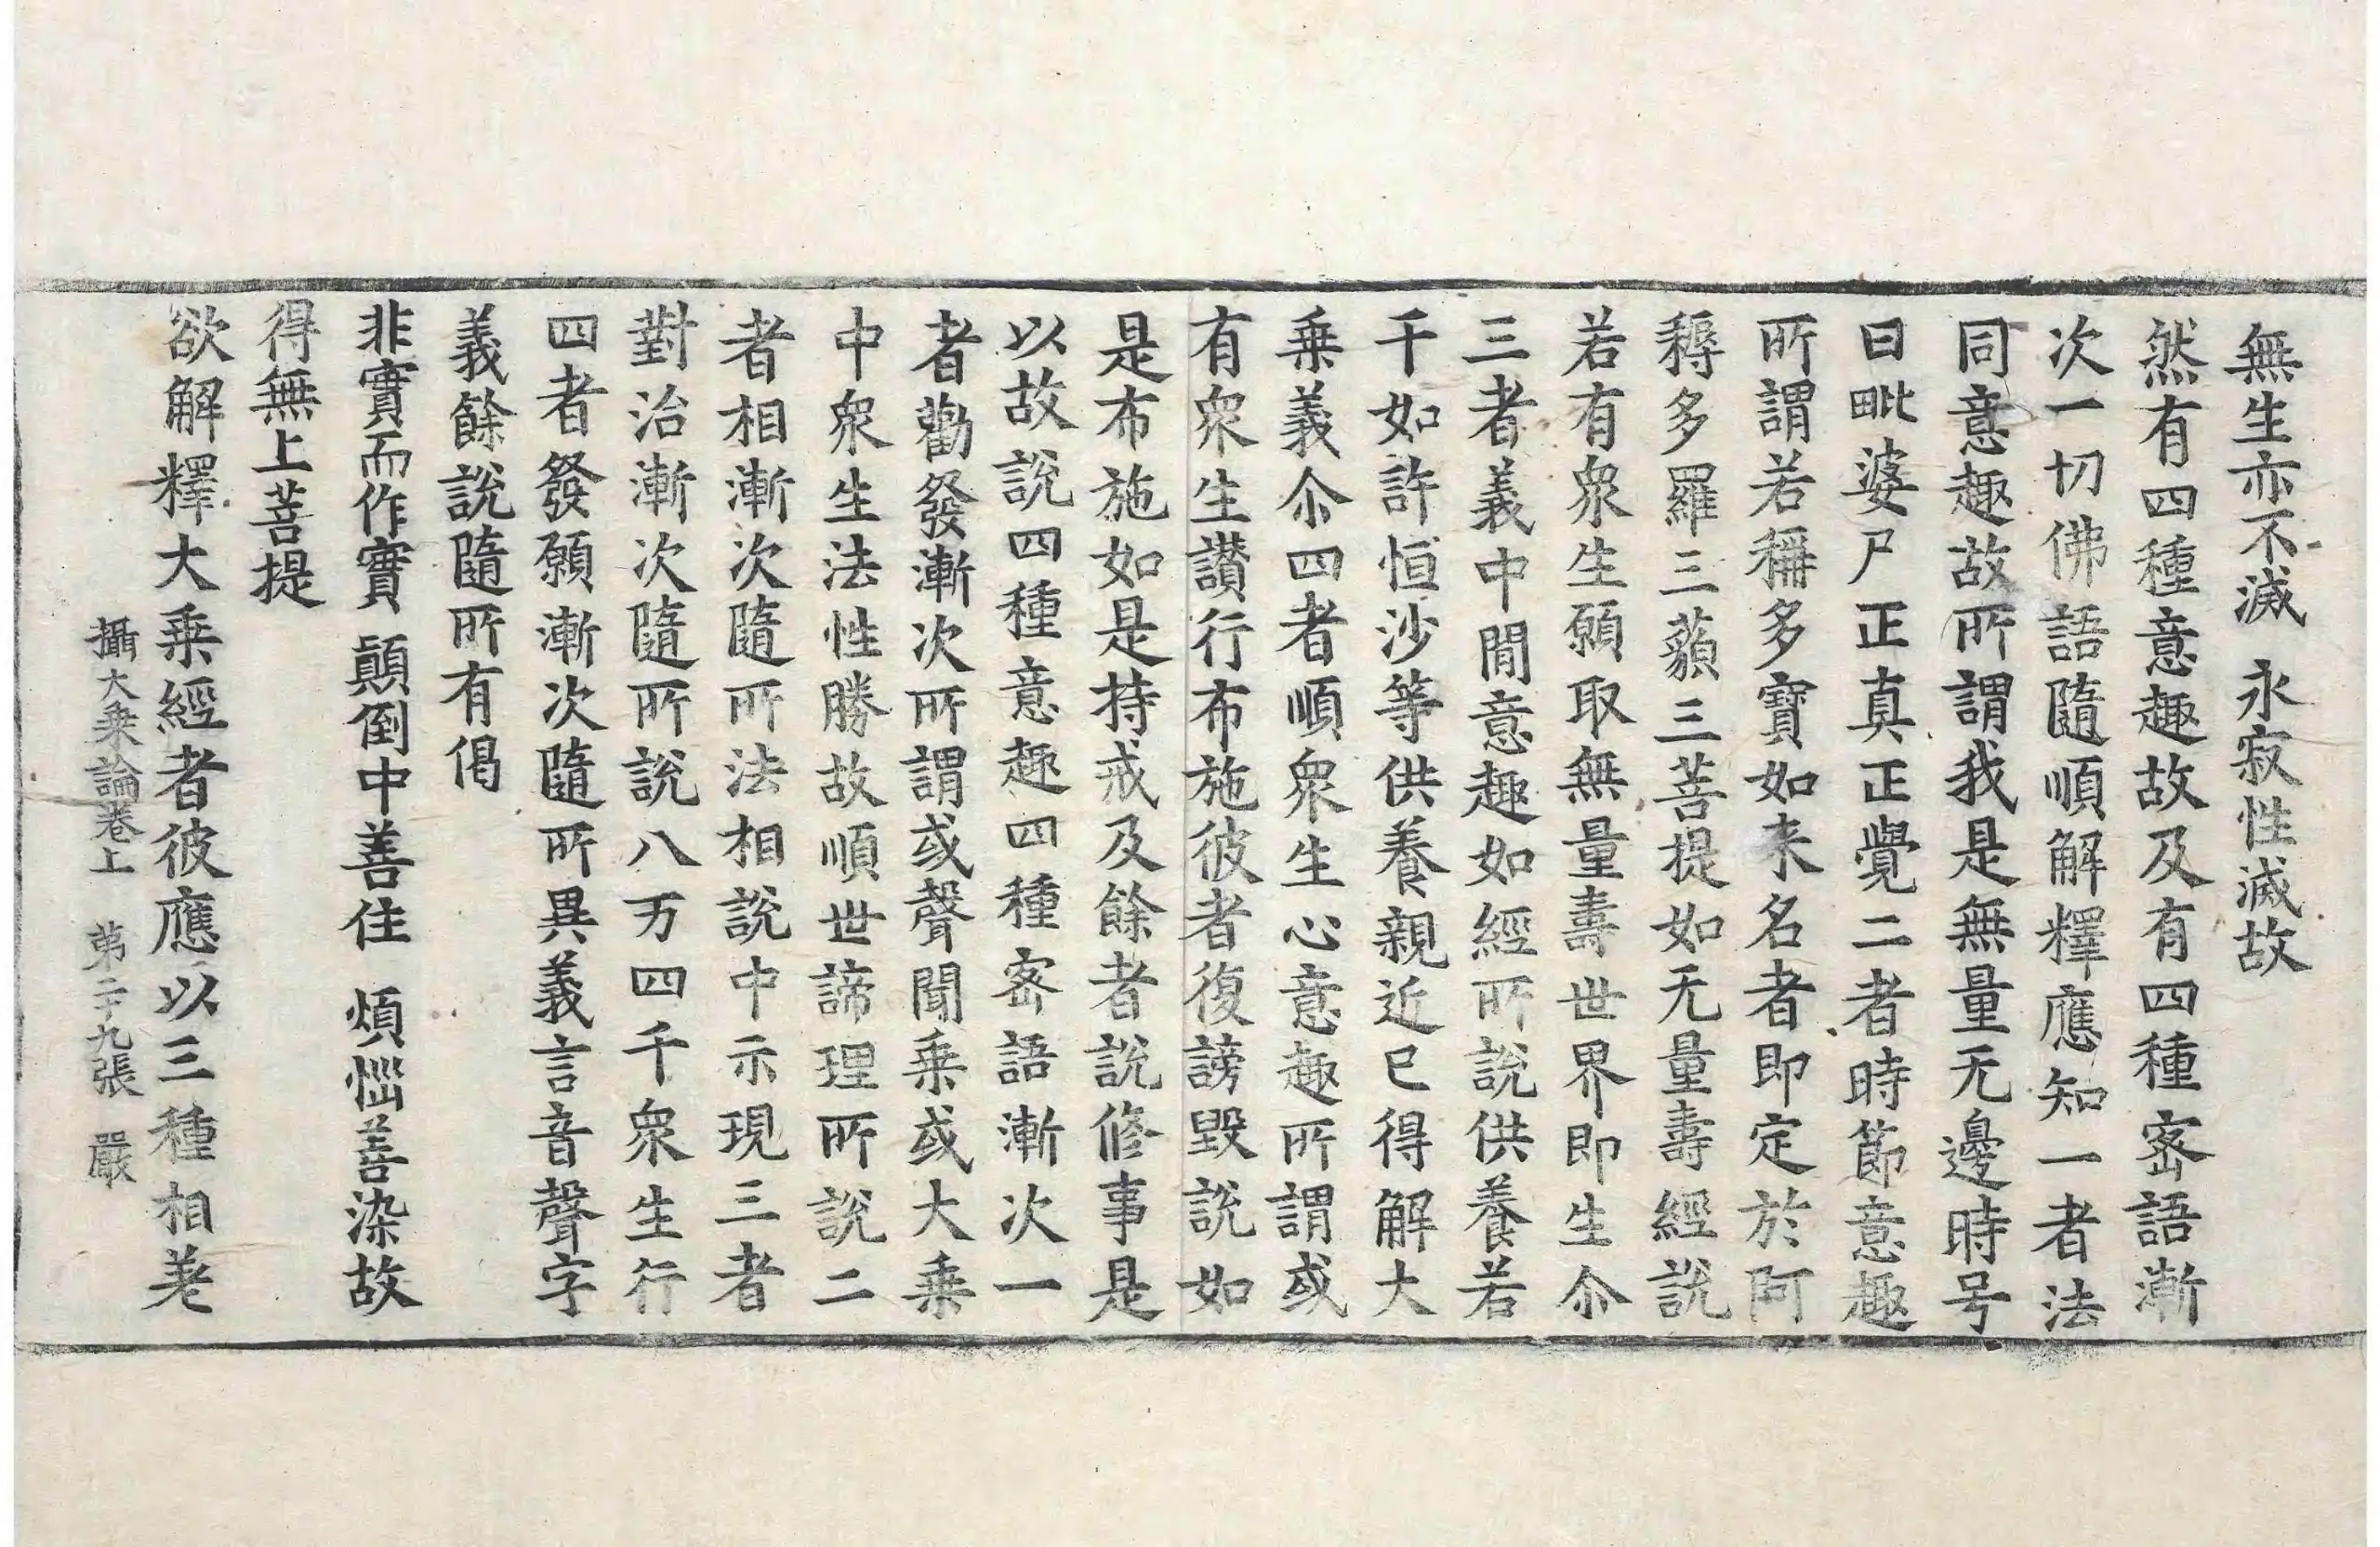 無生亦不滅 永寂性滅故
然有四種意趣故及有四種宻語漸
次一切佛語隨順解釋應知一者法
同意趣故所謂我是無量无邊時号
曰毗婆尸正真正覺二者時節意趣
所謂若稱多寶如来名者即定於阿
耨多羅三藐三菩提如无量壽經說
若有衆生願取無量壽世界即生尒
三者義中閒意趣如經所說供養若
干如許恒沙等供養親近已得解大
乗義尒四者順衆生心意趣所謂或
有衆生讃行布施彼者復謗毀說如
是布施如是持戒及餘者說修事是
以故說四種意趣四種宻語漸次一
者勸發漸次所謂或聲聞乗或大乗
中衆生法性勝故順世諦理所說二
者相漸次隨所法相說中示現三者
對治漸次隨所說八万四千衆生行
四者發願漸次隨所異義言音聲字
義餘說隨所有偈
非實而作實 顚倒中善住 煩惱善染故
得無上菩提
欲解釋大乗經者彼應以三種相差
攝大乗論卷上 第二十九張 嚴